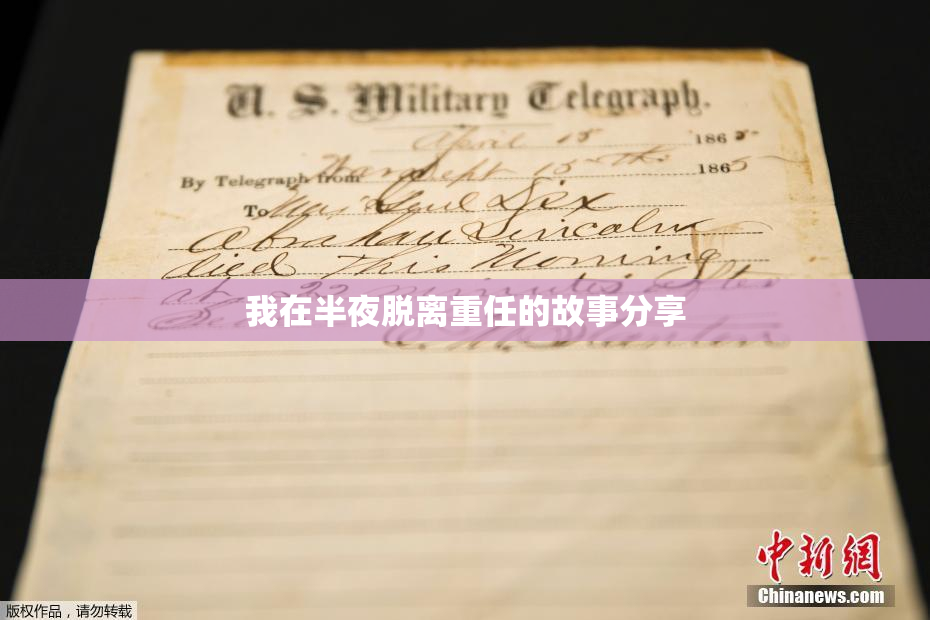 U. S. Military Telegraph.
April 15 1865
By Telegraph from War Dept 15th 1865
To Maj Genl Dix
Abraham Lincoln
died This Morning
at 22 minutes after
我在半夜脱离重任的故事分享
E. M. Stanton
中新网
Chinanews.com
版权作品，请勿转载